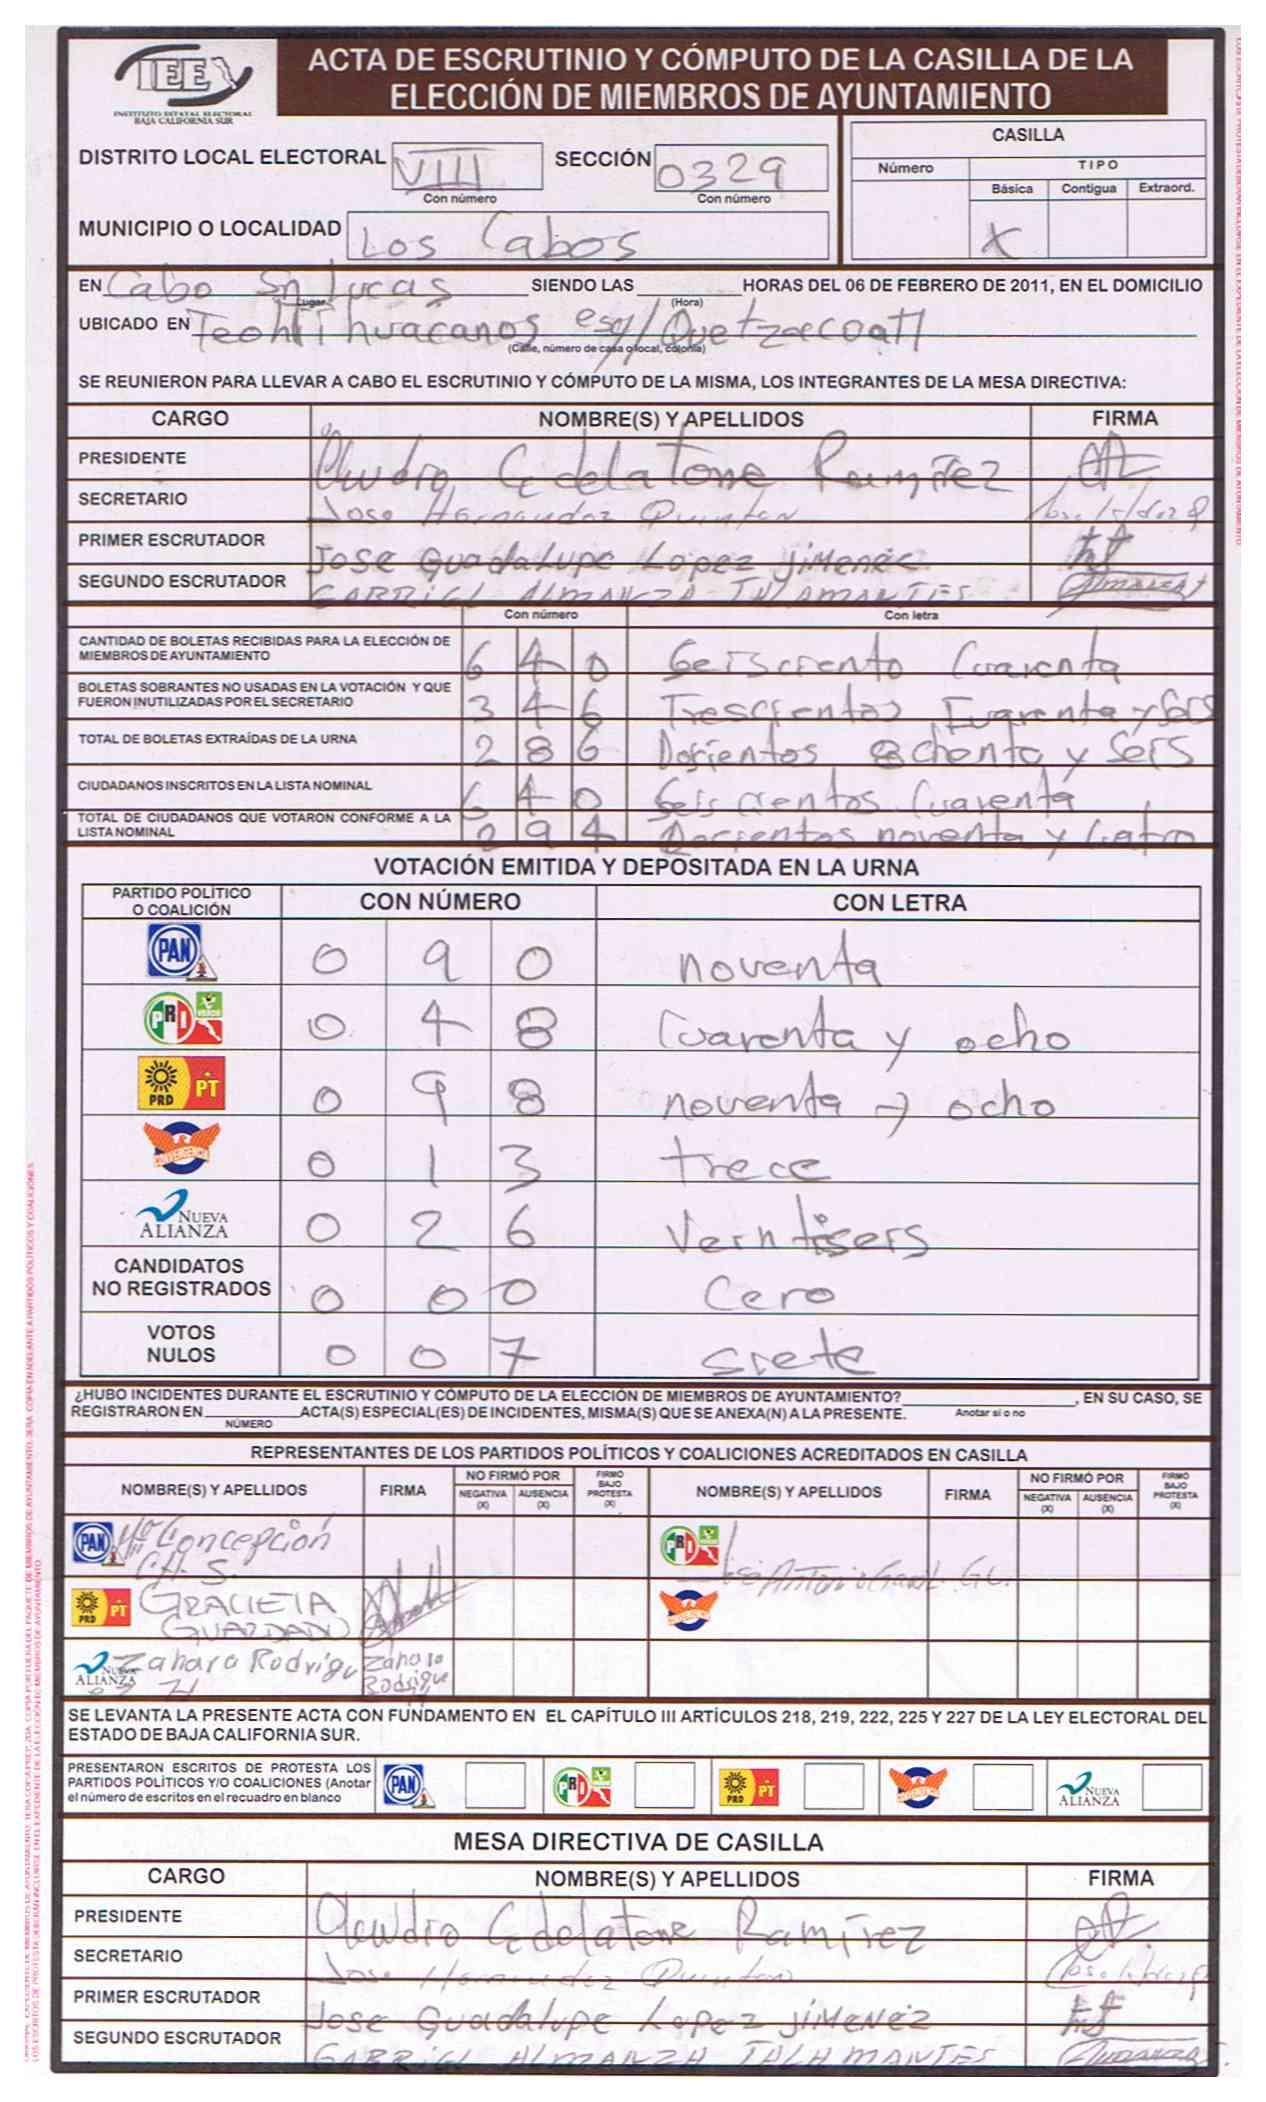 IEE
INSTITUTO ESTATAL ELECTORAL
BAJA CALIFORNIA SUR
ACTA DE ESCRUTINIO Y CÓMPUTO DE LA CASILLA DE LA
ELECCIÓN DE MIEMBROS DE AYUNTAMIENTO
DISTRITO LOCAL ELECTORAL VIII SECCIÓN 0329
Con número Con número
MUNICIPIO O LOCALIDAD Los Cabos
CASILLA
Número TIPO
Básica Contigua Extraord.
X
EN Cabo Sn Lucas SIENDO LAS HORAS DEL 06 DE FEBRERO DE 2011, EN EL DOMICILIO
Lugar (Hora)
UBICADO EN esq/
(Calle, número de casa o local, colonia)
SE REUNIERON PARA LLEVAR A CABO EL ESCRUTINIO Y CÓMPUTO DE LA MISMA, LOS INTEGRANTES DE LA MESA DIRECTIVA:
CARGO NOMBRE(S) Y APELLIDOS FIRMA
PRESIDENTE Ramírez
SECRETARIO Jose Hernandez
PRIMER ESCRUTADOR Jose Guadalupe Lopez JiMenez
SEGUNDO ESCRUTADOR GABRIEL ALMANZA TALAMANTES
Con número Con letra
CANTIDAD DE BOLETAS RECIBIDAS PARA LA ELECCIÓN DE
MIEMBROS DE AYUNTAMIENTO 6 4 0 Seisciento Cuarenta
BOLETAS SOBRANTES NO USADAS EN LA VOTACIÓN Y QUE
FUERON INUTILIZADAS POR EL SECRETARIO 3 4 6 Trescientos Cuarenta y Seis
TOTAL DE BOLETAS EXTRAÍDAS DE LA URNA 2 8 6 Docientos ochenta y Seis
CIUDADANOS INSCRITOS EN LA LISTA NOMINAL 6 4 0 Seiscientos Cuarenta
TOTAL DE CIUDADANOS QUE VOTARON CONFORME A LA
LISTA NOMINAL 2 9 4 Docientos noventa y Cuatro
VOTACIÓN EMITIDA Y DEPOSITADA EN LA URNA
PARTIDO POLÍTICO
O COALICIÓN CON NÚMERO CON LETRA
PAN 0 9 0 noventa
PRI VERDE 0 4 8 Cuarenta y ocho
PRD PT 0 9 8 noventa y ocho
CONVERGENCIA 0 1 3 trece
NUEVA
ALIANZA 0 2 6 Veintiseis
CANDIDATOS
NO REGISTRADOS 0 0 0 Cero
VOTOS
NULOS 0 0 7 siete
¿HUBO INCIDENTES DURANTE EL ESCRUTINIO Y CÓMPUTO DE LA ELECCIÓN DE MIEMBROS DE AYUNTAMIENTO? , EN SU CASO, SE
REGISTRARON EN ACTA(S) ESPECIAL(ES) DE INCIDENTES, MISMA(S) QUE SE ANEXA(N) A LA PRESENTE. Anotar sí o no
NÚMERO
REPRESENTANTES DE LOS PARTIDOS POLÍTICOS Y COALICIONES ACREDITADOS EN CASILLA
NOMBRE(S) Y APELLIDOS FIRMA NO FIRMÓ POR NEGATIVA (X) AUSENCIA (X) FIRMÓ BAJO PROTESTA (X) NOMBRE(S) Y APELLIDOS FIRMA NO FIRMÓ POR NEGATIVA (X) AUSENCIA (X) FIRMÓ BAJO PROTESTA (X)
PAN Ma Concepción PRI VERDE Antonio
C.H.S.
PRD PT GRACIELA CONVERGENCIA
NUEVA ALIANZA Zahara Rodrigu Zahara
ez H Rodrigue
SE LEVANTA LA PRESENTE ACTA CON FUNDAMENTO EN EL CAPÍTULO III ARTÍCULOS 218, 219, 222, 225 Y 227 DE LA LEY ELECTORAL DEL
ESTADO DE BAJA CALIFORNIA SUR.
PRESENTARON ESCRITOS DE PROTESTA LOS
PARTIDOS POLÍTICOS Y/O COALICIONES (Anotar
el número de escritos en el recuadro en blanco
PAN PRI VERDE PRD PT CONVERGENCIA NUEVA ALIANZA
MESA DIRECTIVA DE CASILLA
CARGO NOMBRE(S) Y APELLIDOS FIRMA
PRESIDENTE Ramírez
SECRETARIO Jose Hernandez
PRIMER ESCRUTADOR Jose Guadalupe Lopez JiMenez
SEGUNDO ESCRUTADOR GABRIEL ALMANZA TALAMANTES